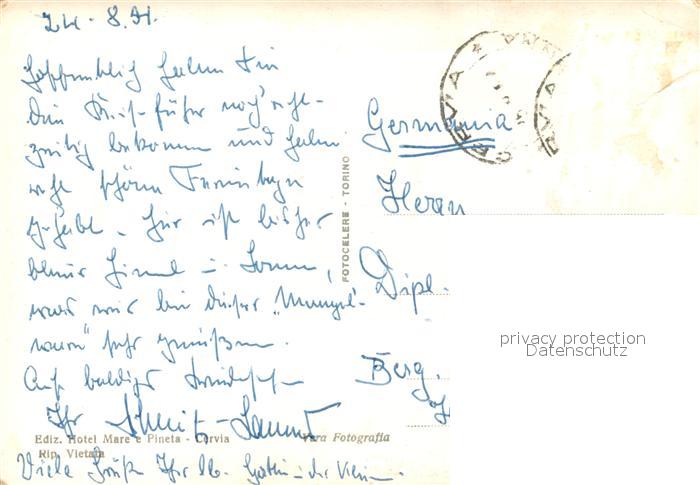 Hoffentlich haben Sie
den Reiseführer noch recht-
zeitig bekommen und haben
recht schöne Ferientage
gehabt. Hier ist bisher
blauer Himmel u. Sonne,
was wir bei dieser „Mangel-
ware" sehr genießen.
Auf baldiges
Ihr
Viele Grüße Ihrer lb. Gattin
Germania
Herrn
Dipl.
Berg.
CERVIA
FOTOCELERE - TORINO
Ediz. Hotel Mare e Pineta - Cervia
Rip. Vietata
Vera Fotografia
privacy protection
Datenschutz